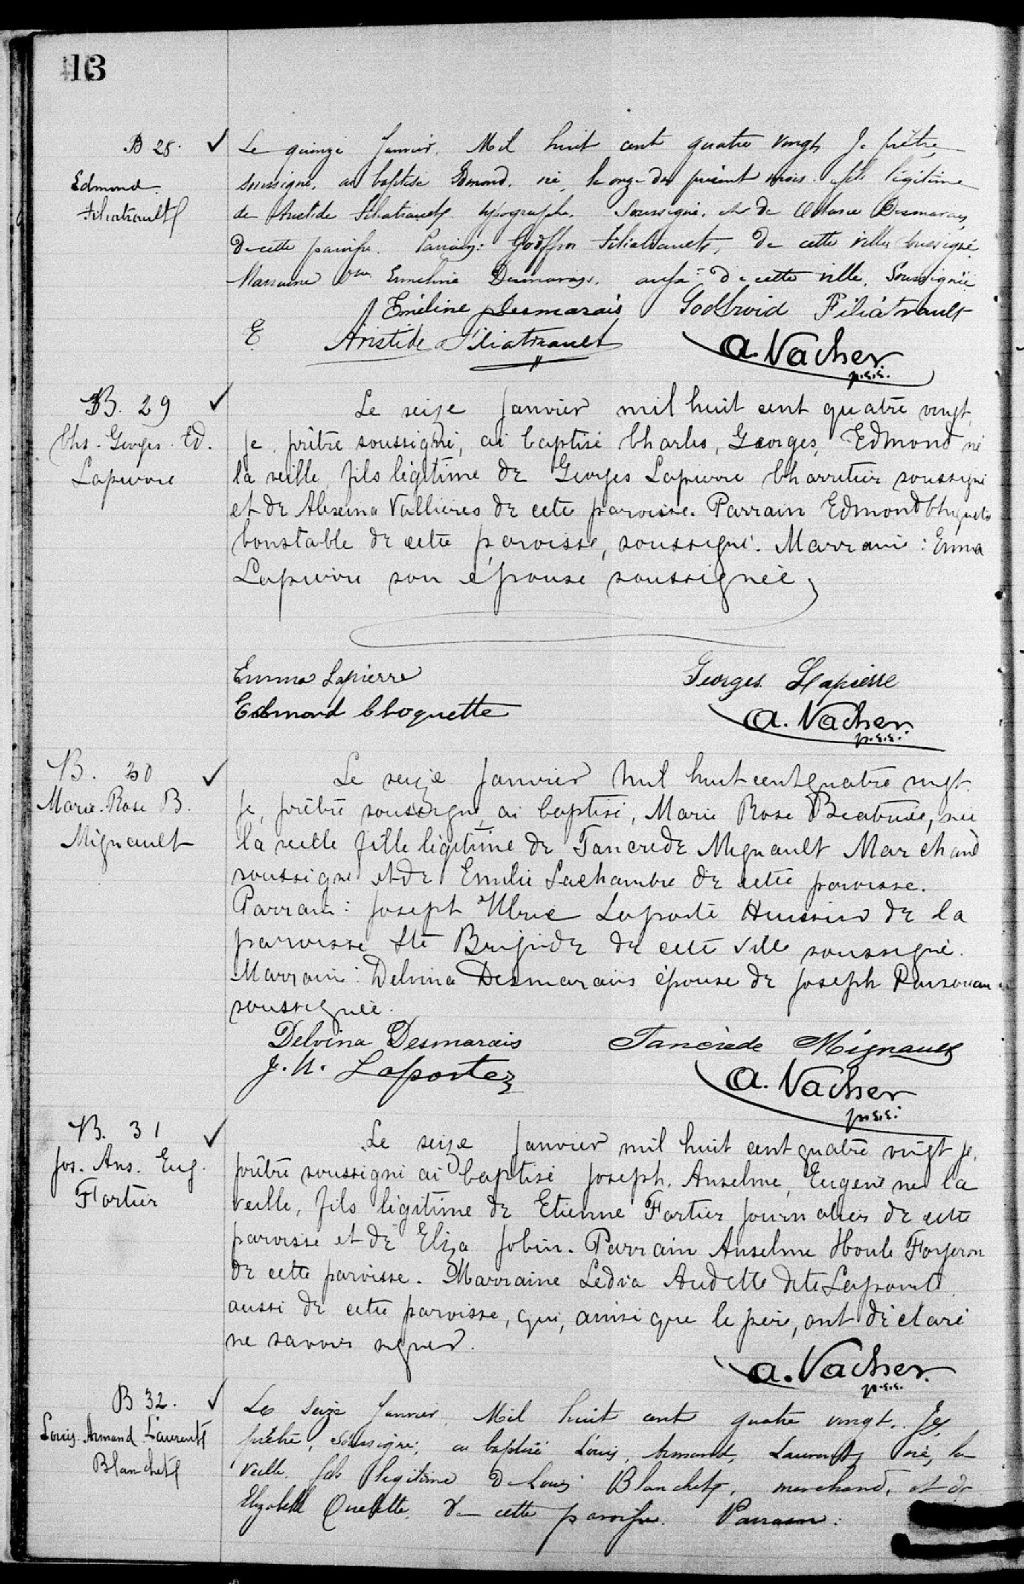 13
B 28.
Edmond
Filiatrault
Le quinze Janvier, Mil huit cent quatre vingt, Je prêtre
soussigné, ai baptisé Edmond, né, le onze du présent mois, fils légitime
de Aristide Filiatrault, typographe, Soussigné, et de Desmarais,
de cette paroisse. Parrain: Godfroi Filiatrault, de cette ville soussigné.
Marraine Emeline Desmarais, aussi de cette ville, Soussignée
Eméline Desmarais Godfroid Filiatrault
E Aristide Filiatrault A. Vacher
p.s.s.
B. 29
Chs. Georges. Ed.
Lapierre
Le seize Janvier mil huit cent quatre vingt,
Je, prêtre soussigné, ai baptisé Charles, Georges, Edmond né
la veille, fils légitime de Georges Lapierre Charretier soussigné
et de Alexina Vallieres de cette paroisse. Parrain Edmond Choquette
Constable de cette paroisse, soussigné. Marraine: Emma
Lapierre son épouse soussignée
Emma Lapierre Georges Lapierre
Edmond Choquette A. Vacher
p.s.s.
B. 30
Marie-Rose B.
Mignault
Le seize Janvier mil huit cent quatre vingt
Je, prêtre soussigné, ai baptisé, Marie Rose Béatrice, née
la veille fille légitime de Tancrède Mignault Marchand
soussigné et de Emilie Lachambre de cette paroisse.
Parrain: Joseph Ulric Laporte Huissier de la
paroisse Ste Brigide de cette ville soussigné.
Marraine: Delvina Desmarais épouse de Joseph
soussignée.
Delvina Desmarais Tancrède Mignault
J. U. Laporte A. Vacher
p.s.s.
B. 31
Jos. Ans. Eug.
Fortier
Le seize Janvier mil huit cent quatre vingt je,
prêtre soussigné ai baptisé Joseph, Anselme, Eugène né la
veille, fils légitime de Etienne Fortier journalier de cette
paroisse et de Eliza Jobin. Parrain Anselme Houle Forgeron
de cette paroisse. Marraine Ledia Audette dite Lapointe
aussi de cette paroisse, qui, ainsi que le père, ont déclaré
ne savoir signer.
A. Vacher
p.s.s.
B 32.
Louis-Armand Laurent
Blanchet
Le seize Janvier, Mil huit cent quatre vingt, Je,
prêtre, soussigné, ai baptisé Louis, Armand, Laurent, né, la
veille, fils légitime de Louis Blanchet, marchand, et de
Elizabeth Ouellette, de cette paroisse. Parrain: